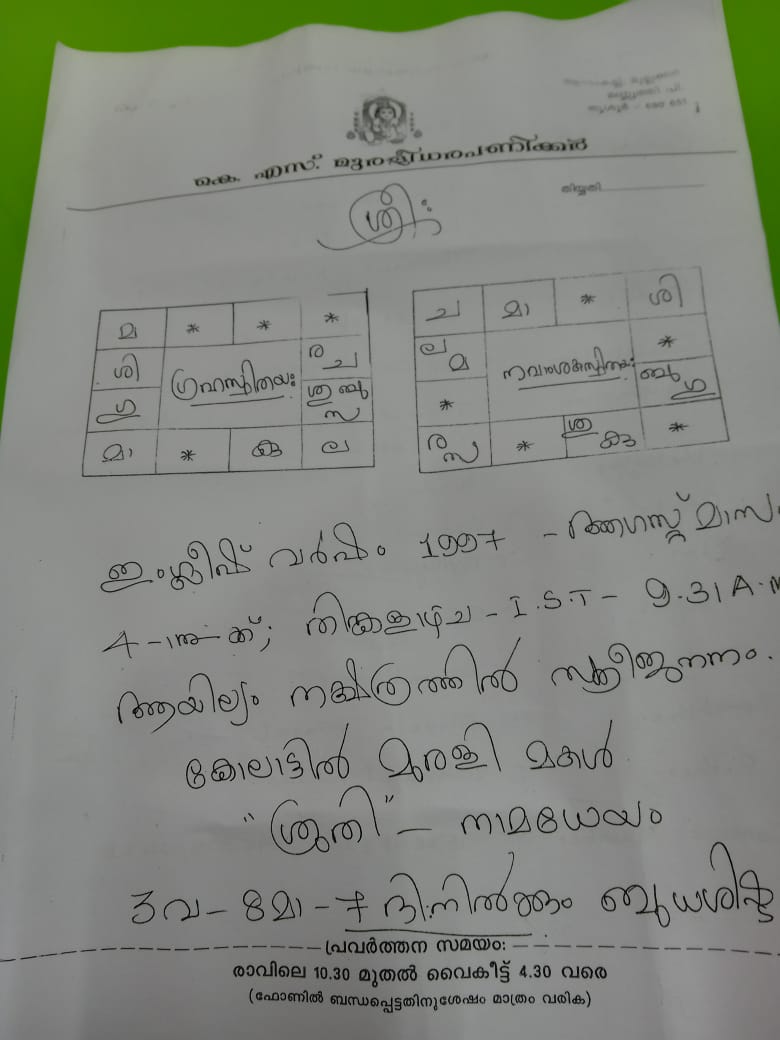 തൃശൂർ - 680 651
കെ. എസ്. മുരളീധരപണിക്കർ
തിയ്യതി
ശ്രീ:
മ * * *
ശി
ഗു
ഗ്രഹസ്ഥിതയഃ
ര ച
ശു ബു സ
മാ * കു ല
ച മാ * ശി
ല മ
*
നവാംശകസ്ഥിതയഃ
*
ബു ഗു
ര സ * ശു കു *
ഇംഗ്ലീഷ് വർഷം 1997 - ആഗസ്റ്റ് മാസം
4-ാം-നു-ക്ക്; തിങ്കളാഴ്ച - I.S.T - 9.31 A.M
ആയില്യം നക്ഷത്രത്തിൽ സ്ത്രീജനനം.
കോലാട്ടിൽ മുരളി മകൾ
"ശ്രുതി" - നാമധേയം
3വ - 8മാ - 7 ദി:നിൽക്കും ബുധശിഷ്ട
പ്രവർത്തന സമയം:
രാവിലെ 10.30 മുതൽ വൈകീട്ട് 4.30 വരെ
(ഫോണിൽ ബന്ധപ്പെട്ടതിനുശേഷം മാത്രം വരിക)